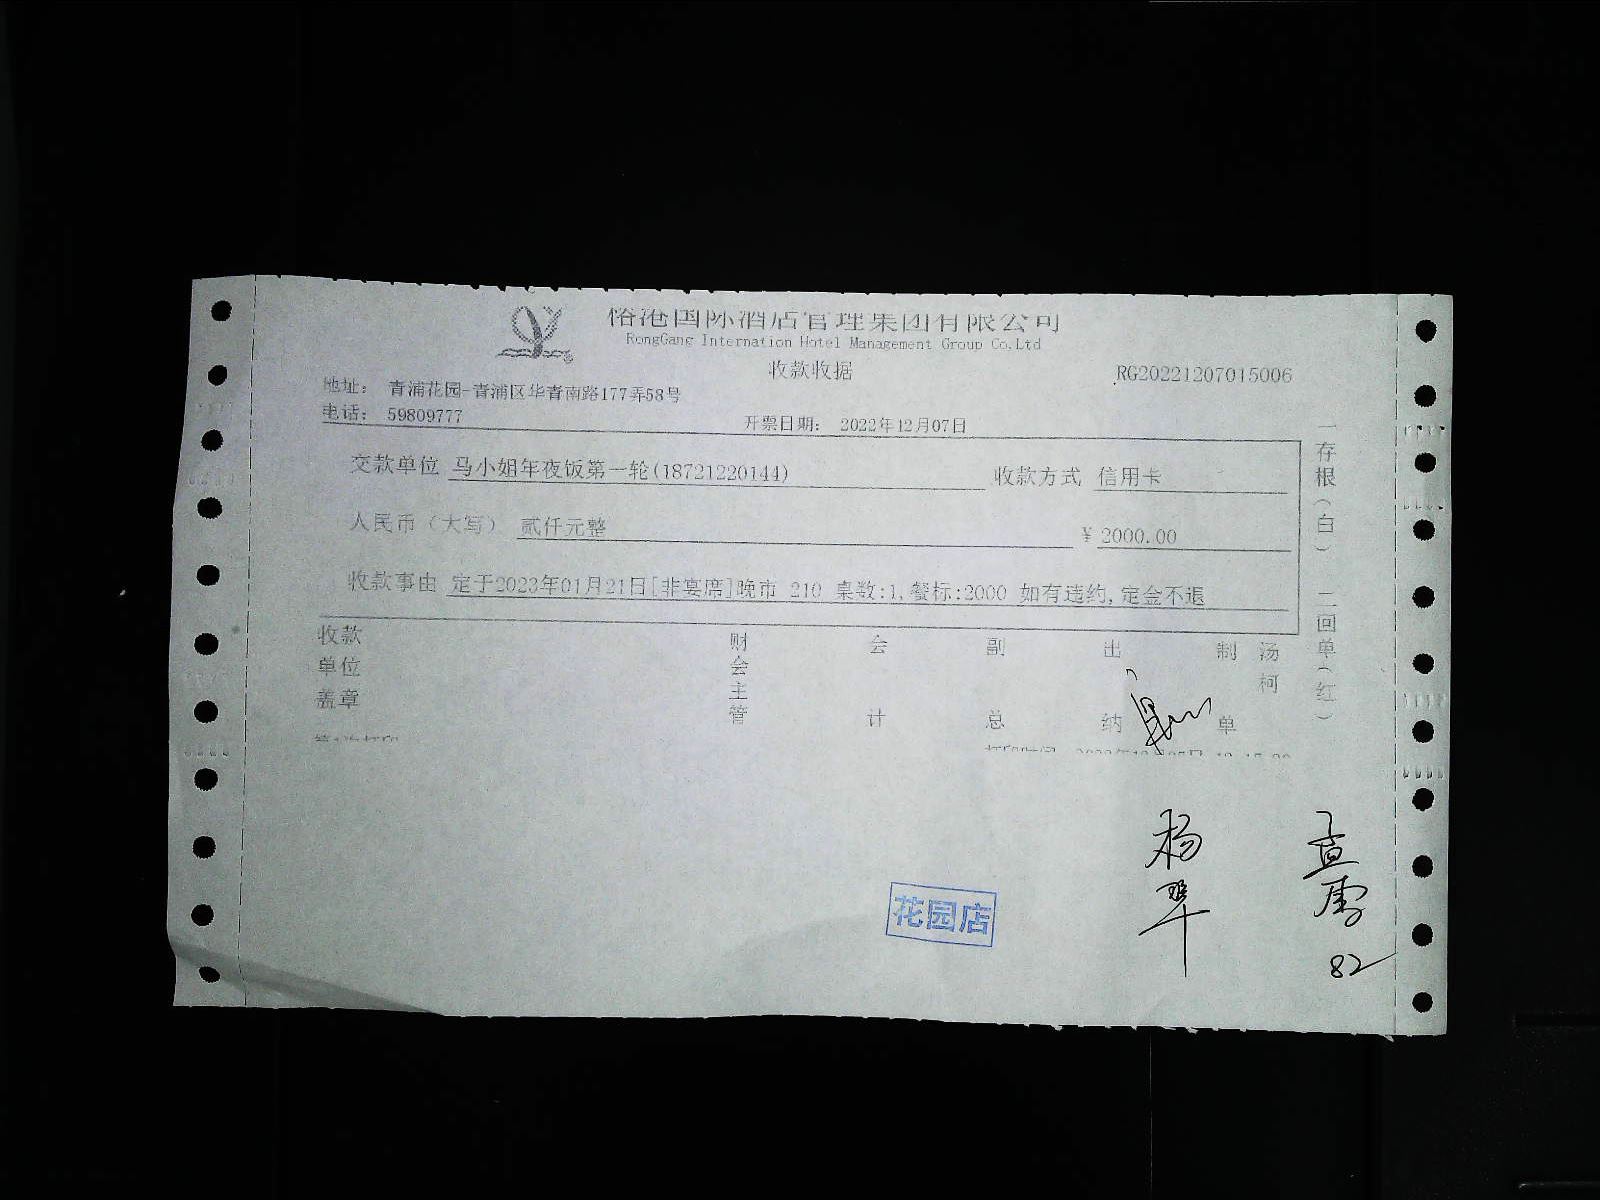 俗港国际酒店管理集团有限公司
RongGang Internation Hotel Management Group Co.Ltd
收款收据
RG20221207015006
地址： 青浦花园-青浦区华青南路177弄58号
电话： 59809777
开票日期： 2022年12月07日
交款单位 马小姐年夜饭第一轮(18721220144) 收款方式 信用卡
人民币（大写） 贰仟元整 ¥ 2000.00
收款事由 定于2023年01月21日[非宴席]晚市 210 桌数:1,餐标:2000 如有违约,定金不退
收款单位盖章
财会主管
会计
副总
出纳
制单
汤柯
一存根(白) 二回单(红)
花园店
杨翠
82